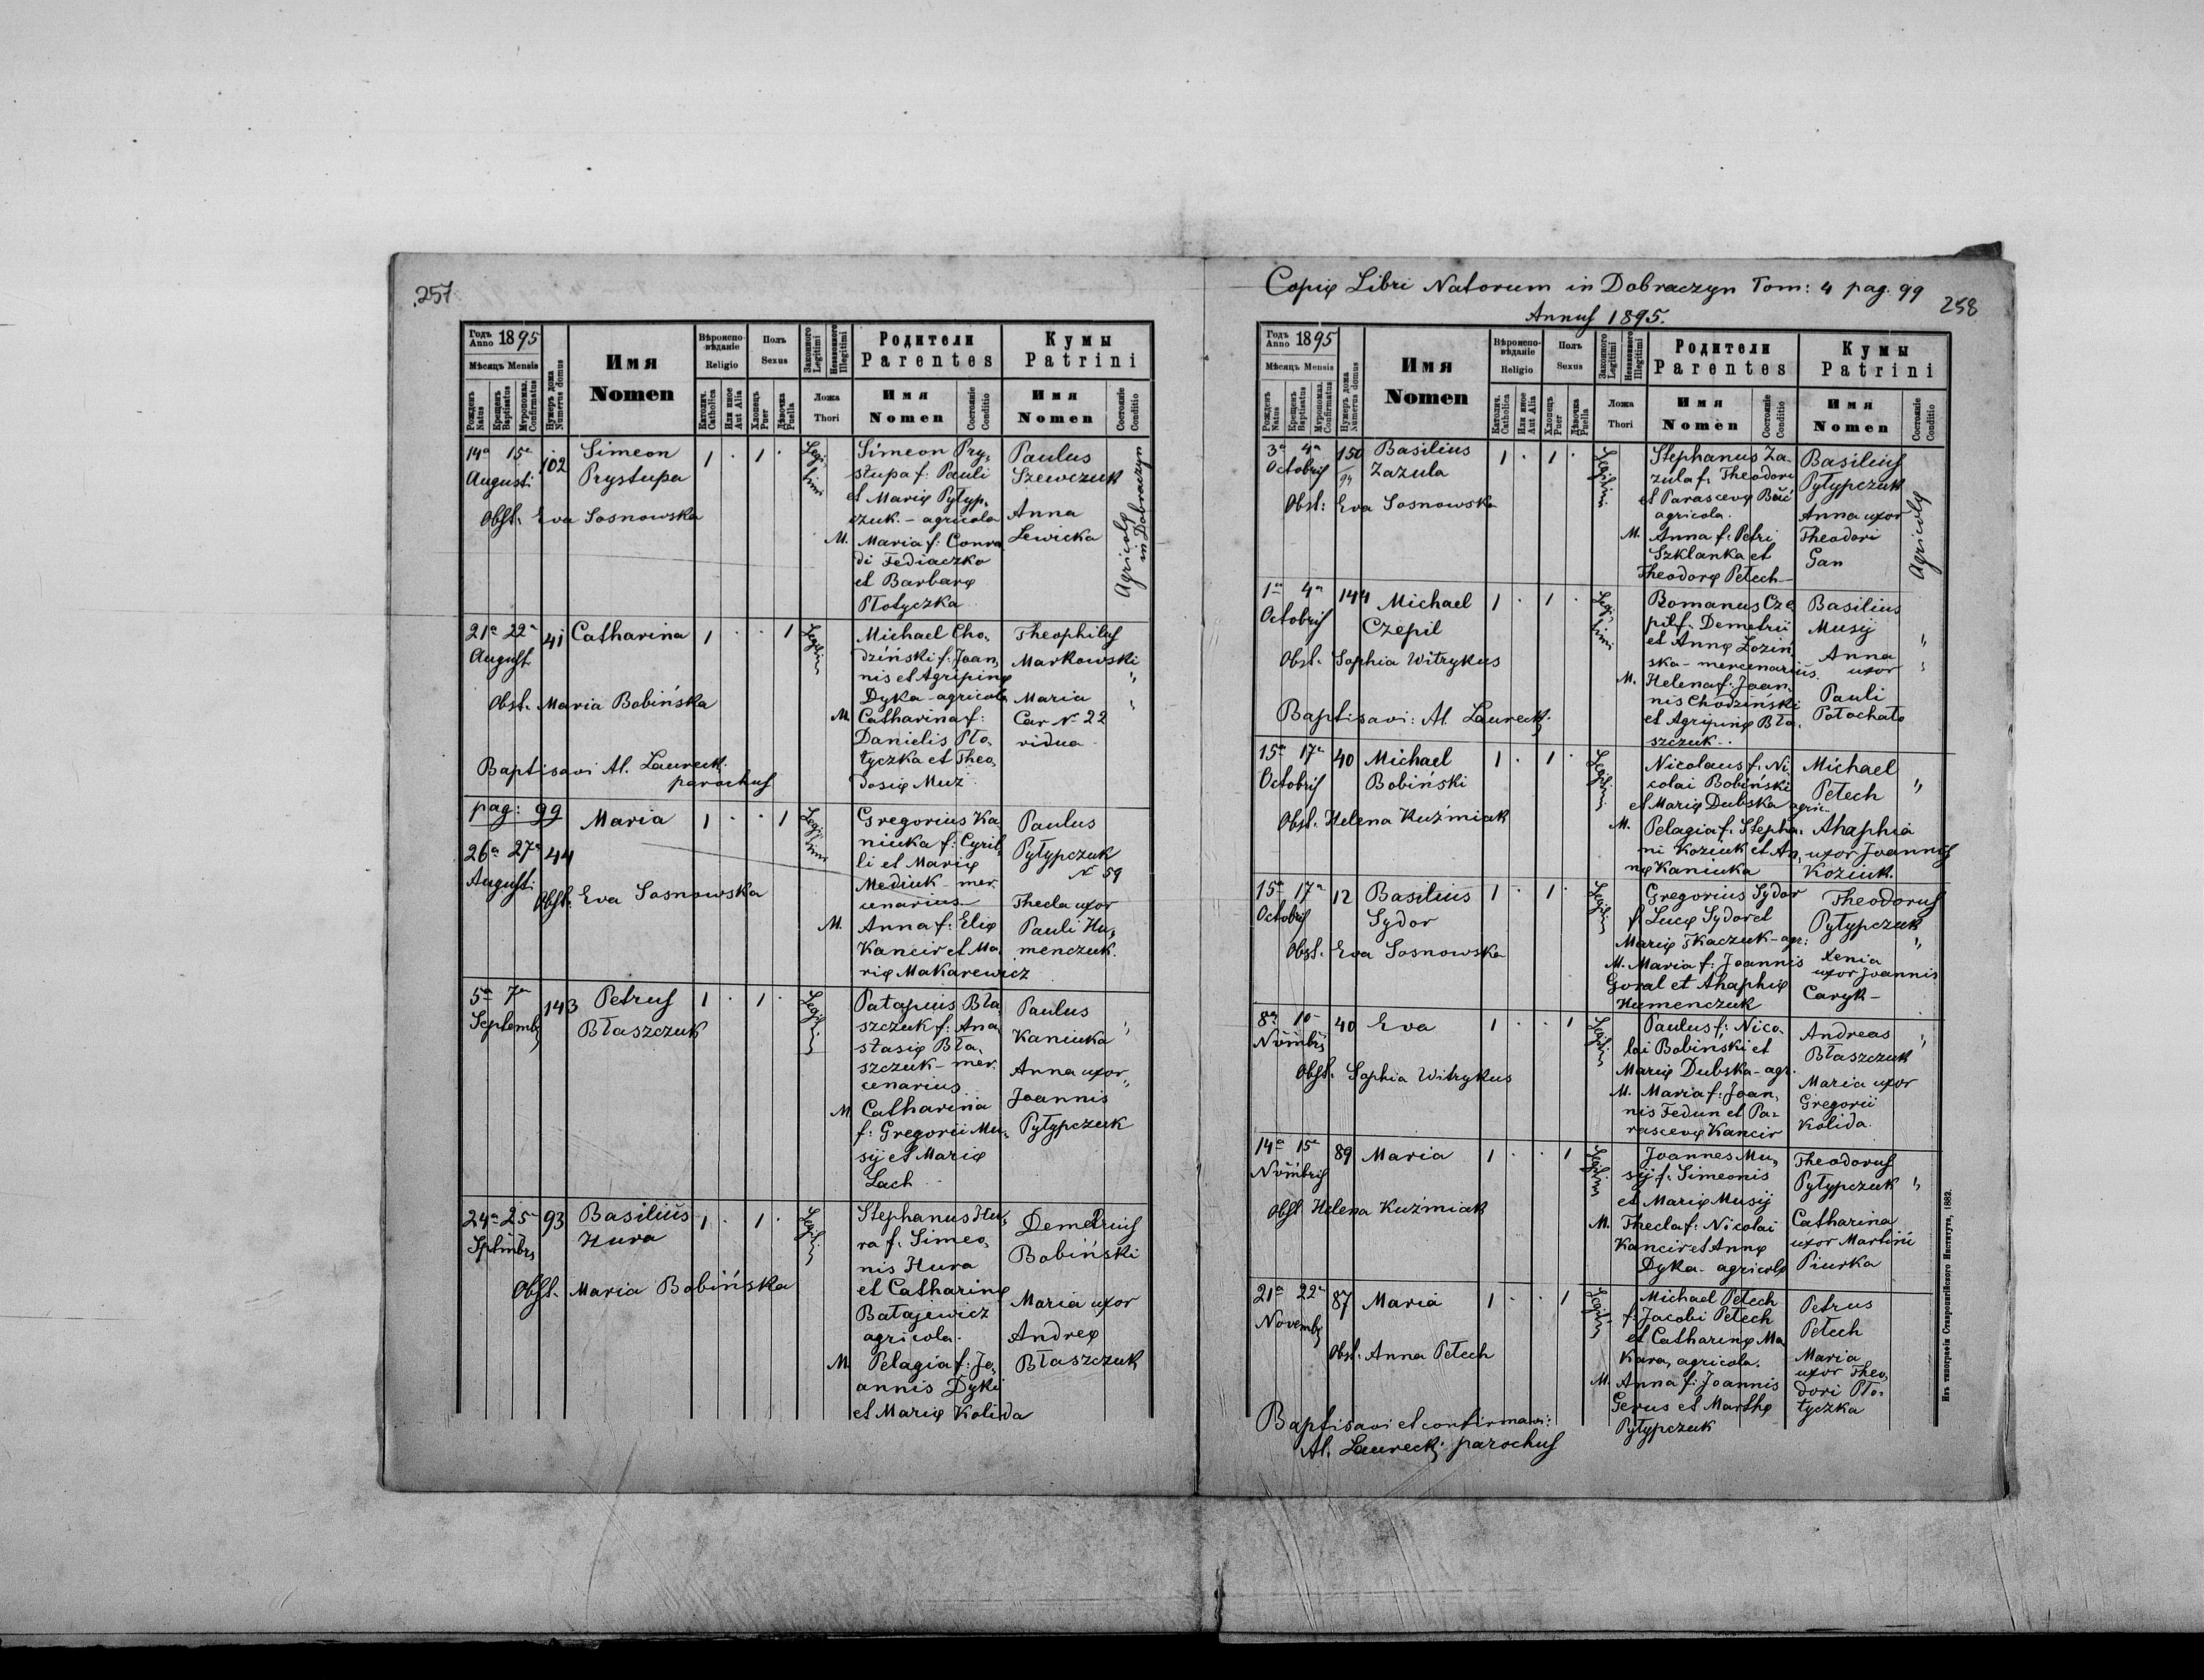 257
Годъ Anno 1895
Мѣсяцъ Mensis
Рожденъ Natus
Крещенъ Baptisatus
Мѵропомаз. Confirmatus
Нумеръ дома Numerus domus
Имя
Nomen
Вѣроиспо-
вѣданіе
Religio
Католич. Catholica
Или иное Aut Alia
Полъ
Sexus
Хлопецъ Puer
Дѣвочка Puella
Законного Legitimi
Незаконного Illegitimi
Ложа
Thori
Родители
Parentes
Имя
Nomen
Состояніе Conditio
Кумы
Patrini
Имя
Nomen
Состояніе Conditio
14a 15a
Augusti
102
Simeon
Prystupa
1 . 1 .
Legitimi
Obst. Eva Sosnowska
Simeon Pry,
stupa f: Pauli
et Marię Pyłyp,
czuk. - agricola
M. Maria f: Conra
di Fediaczko
et Barbarę
Płotyczka
Paulus
Szewczuk
Anna
Lewicka
Agricolę in Dobraczyn
21a 22a
August.
41
Catharina
1 . . 1
Legitimi
Obst. Maria Bobińska
Michael Cho,
dziński f: Joan,
nis et Agripinę
Dyka - agricola
M. Catharina f:
Danielis Pło,
tyczka et Theo,
dosię Muz
Theophilus
Markowski "
Maria "
Car No 22
vidua
Baptisavi Al. Laurecki
parochus
pag: 99
26a 27a
August.
44
Maria
1 . . 1
Legitimi
Obst. Eva Sosnowska
Gregorius Ka
niuka f: Cyril,
li et Marię
Mediuk - mer.
cenarius
M. Anna f: Elię
Kancir et Ma,
rię Makarewicz
Paulus
Pyłypczuk
N 59
Thecla uxor
Pauli Hu,
menczuk.
5a 7a
Septemb
143
Petrus
Błaszczuk
1 . 1 .
Legitimi
Patapius Bła,
szczuk f: Ana,
stasię Bła,
szczuk - mer.
cenarius
M. Catharina
f: Gregorii Mu,
sij et Marię
Lach
Paulus
Kaniuka "
Anna uxor "
Joannis
Pyłypczuk
24a 25
Sptmbrs
93
Basilius
Hura
1 . 1 .
Legitimi
Obst. Maria Bobińska
Stephanus Hu,
ra f: Simeo,
nis Hura
et Catharinę
Batajewicz
agricola.
M. Pelagia f: Jo,
annis Dyki
et Marię Kolida
Demetrius
Bobiński
Maria uxor
Andreę
Błaszczuk
Copię Libri Natorum in Dobraczyn Tom: 4 pag. 99
258
Annus 1895.
Годъ Anno 1895
Мѣсяцъ Mensis
Рожденъ Natus
Крещенъ Baptisatus
Мѵропомаз. Confirmatus
Нумеръ дома Numerus domus
Имя
Nomen
Вѣроиспо-
вѣданіе
Religio
Католич. Catholica
Или иное Aut Alia
Полъ
Sexus
Хлопецъ Puer
Дѣвочка Puella
Законного Legitimi
Незаконного Illegitimi
Ложа
Thori
Родители
Parentes
Имя
Nomen
Состояніе Conditio
Кумы
Patrini
Имя
Nomen
Состояніе Conditio
3a 4a
Octobris
150
94
Basilius
Zazula
1 . 1 .
Legitimi
Obst: Eva Sosnowska
Stephanus Za,
zula f: Theodori
et Parascevę
agricola.
M. Anna f: Petri
Szklanka et
Theodorę Petech
Basilius
Pyłypczuk
Anna uxor
Theodori
Gan
Agricolę
1a 4a
Octobris
144
Michael
Czepil
1 . 1 .
Legitimi
Obst. Sophia Witrykus
Romanus Cze,
pil f: Demetrii
et Annę Łoziń
ska - mercenarius
M. Helena f: Joan,
nis Chodziński
et Agripinę Bła,
szczuk
Basilius
Musij "
Anna "
uxor
Pauli
Potochato
Baptisavi: Al. Laurecki
15a 17a
Octobris
40
Michael
Bobiński
1 . 1 .
Legitimi
Obst. Helena Kuźmiak
Nicolaus f: Ni
colai Bobiński
et Marię Dubska agric.
M. Pelagia f: Stepha,
ni Koziuk et An,
nę Kaniuka
Michael
Petech "
Ahaphia
uxor Joannis
Koziuk.
15a 17a
Octobris
12
Basilius
Sydor
1 . 1 .
Legitimi
Obst. Eva Sosnowska
Gregorius Sydor
f Lucę Sydor et
Marię Tkaczuk - agr:
M. Maria f: Joannis
Goral et Ahaphię
Humenczuk
Theodorus
Pyłypczuk "
Xenia
uxor Joannis
Caryk -
8a 10
Nvmbris
40
Eva
1 . . 1
Legitimi
Obst. Sophia Witrykus
Paulus f: Nico,
lai Bobiński et
Marię Dubska - agr.
M. Maria f: Joan,
nis Fedun et Pa,
rascevę Kancir
Andreas "
Błaszczuk
Maria uxor
Gregorii
Kolida.
14a 15a
Nvmbris
89
Maria
1 . . 1
Legitimi
Obst Helena Kuźmiak
Joannes Mu,
sij f: Simeonis
et Marię Musij
M. Thecla f: Nicolai
Kancir et Annę
Dyka - agricolę
Theodorus
Pyłypczuk "
Catharina
uxor Martini
Piurka
21a 22a
Novemb
87
Maria
1 . . 1
Legitimi
Obst. Anna Petech
Michael Petech
f: Jacobi Petech
et Catharinę Ma
kara, agricola.
M. Anna f: Joannis
Gerus et Marthę
Pyłypczuk
Petrus
Petech
Maria
uxor Theo,
dori Pło,
tyczka
Baptisavi et confirmavi:
Al. Laurecki parochus
Изъ типографіи Ставропигійского Института, 1882.